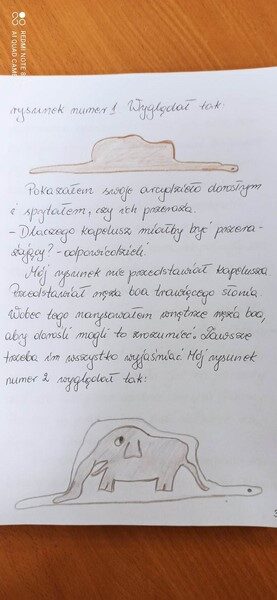 REDMI NOTE 8
AI QUAD CAMERA
rysunek numer 1 Wyglądał tak:
Pokazałem swoje arcydzieło dorosłym
i spytałem, czy ich przeraża.
- Dlaczego kapelusz miałby być przera-
żający? - odpowiedzieli.
Mój rysunek nie przedstawiał kapelusza
Przedstawiał węża boa trawiącego słonia.
Wobec tego narysowałem wnętrze węża boa,
aby dorośli mogli to zrozumieć. Zawsze
trzeba im wszystko wyjaśniać Mój rysunek
numer 2 wyglądał tak: